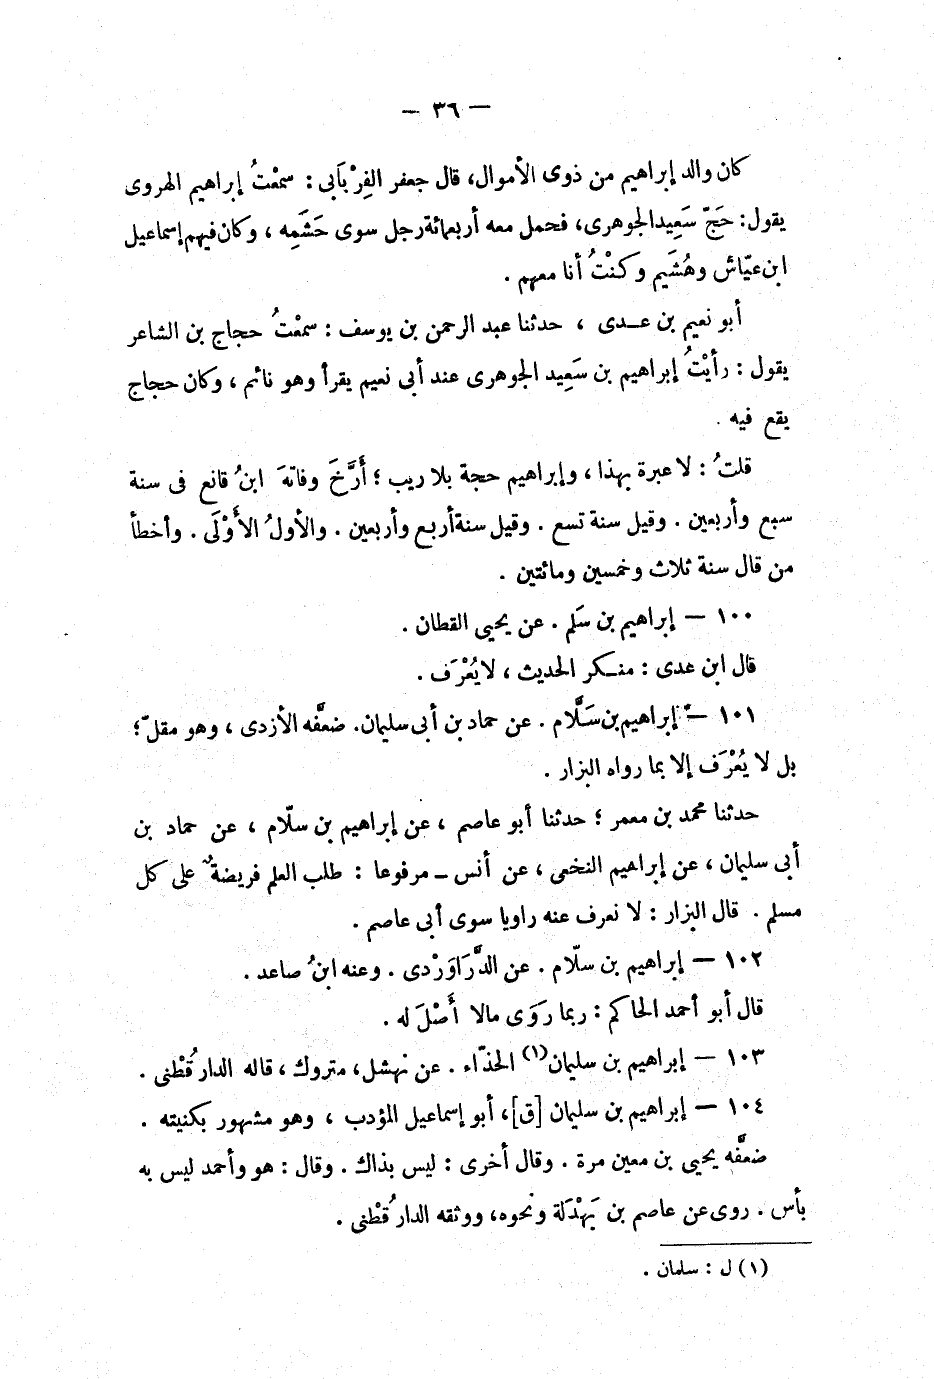 — ٣٦ —
كان والد إبراهيم من ذوى الأموال، قال جعفر الفِرْيَابى : سمعْتُ إبراهيم الهروى
يقول: حَجّ سَعِيد الجوهرى، فحمل معه أربعمائة رجل سوى حَشَمِه ، وكان فيهم إسماعيل
ابن عيّاش وهُشَيم وكنْتُ أنا معهم .
أبو نعيم بن عــدى ، حدثنا عبد الرحمن بن يوسف : سمعْتُ حجاج بن الشاعر
يقول : رأيْتُ إبراهيم بن سَعِيد الجوهرى عند أبى نعيم يقرأ وهو نائم ، وكان حجاج
يقع فيه .
قلتُ : لا عبرة بهذا ، وإبراهيم حجة بلا ريب ؛ أَرَّخَ وفاتَه ابنُ قانع فى سنة
سبع وأربعين . وقيل سنة تسع . وقيل سنة أربع وأربعين . والأولُ الأَوْلَى . وأخطأ
من قال سنة ثلاث وخمسين ومائتين .
١٠٠ — إبراهيم بن سَلم . عن يحيى القطان .
قال ابن عدى : منـكر الحديث ، لا يُعْرَف .
١٠١ — إبراهيم بن سَلَّام . عن حماد بن أبى سليمان. ضعَّفه الأزدى ، وهو مقلّ ؛
بل لا يُعْرَف إلا بما رواه البزار .
حدثنا محمد بن معمر ؛ حدثنا أبو عاصم ، عن إبراهيم بن سلّام ، عن حماد بن
أبى سليمان ، عن إبراهيم النخعى ، عن أنس ــ مرفوعا : طلب العلم فريضةٌ على كل
مسلم . قال البزار : لا نعرف عنه راويا سوى أبى عاصم .
١٠٢ — إبراهيم بن سلّام . عن الدَّرَاوَرْدى . وعنه ابنُ صاعد .
قال أبو أحمد الحاكم : ربما رَوَى مالا أَصْلَ له .
١٠٣ — إبراهيم بن سليمان(١) الحذّاء . عن نهشل، متروك ، قاله الدارقُطْنى .
١٠٤ — إبراهيم بن سليمان [ق]، أبو إسماعيل المؤدب ، وهو مشهور بكنيته .
ضعَّفه يحيى بن معين مرة . وقال أخرى : ليس بذاك . وقال : هو وأحمد ليس به
بأس . روى عن عاصم بن بَهْدَلة ونحوه، ووثقه الدارقُطْنى .
(١) ل : سلمان .